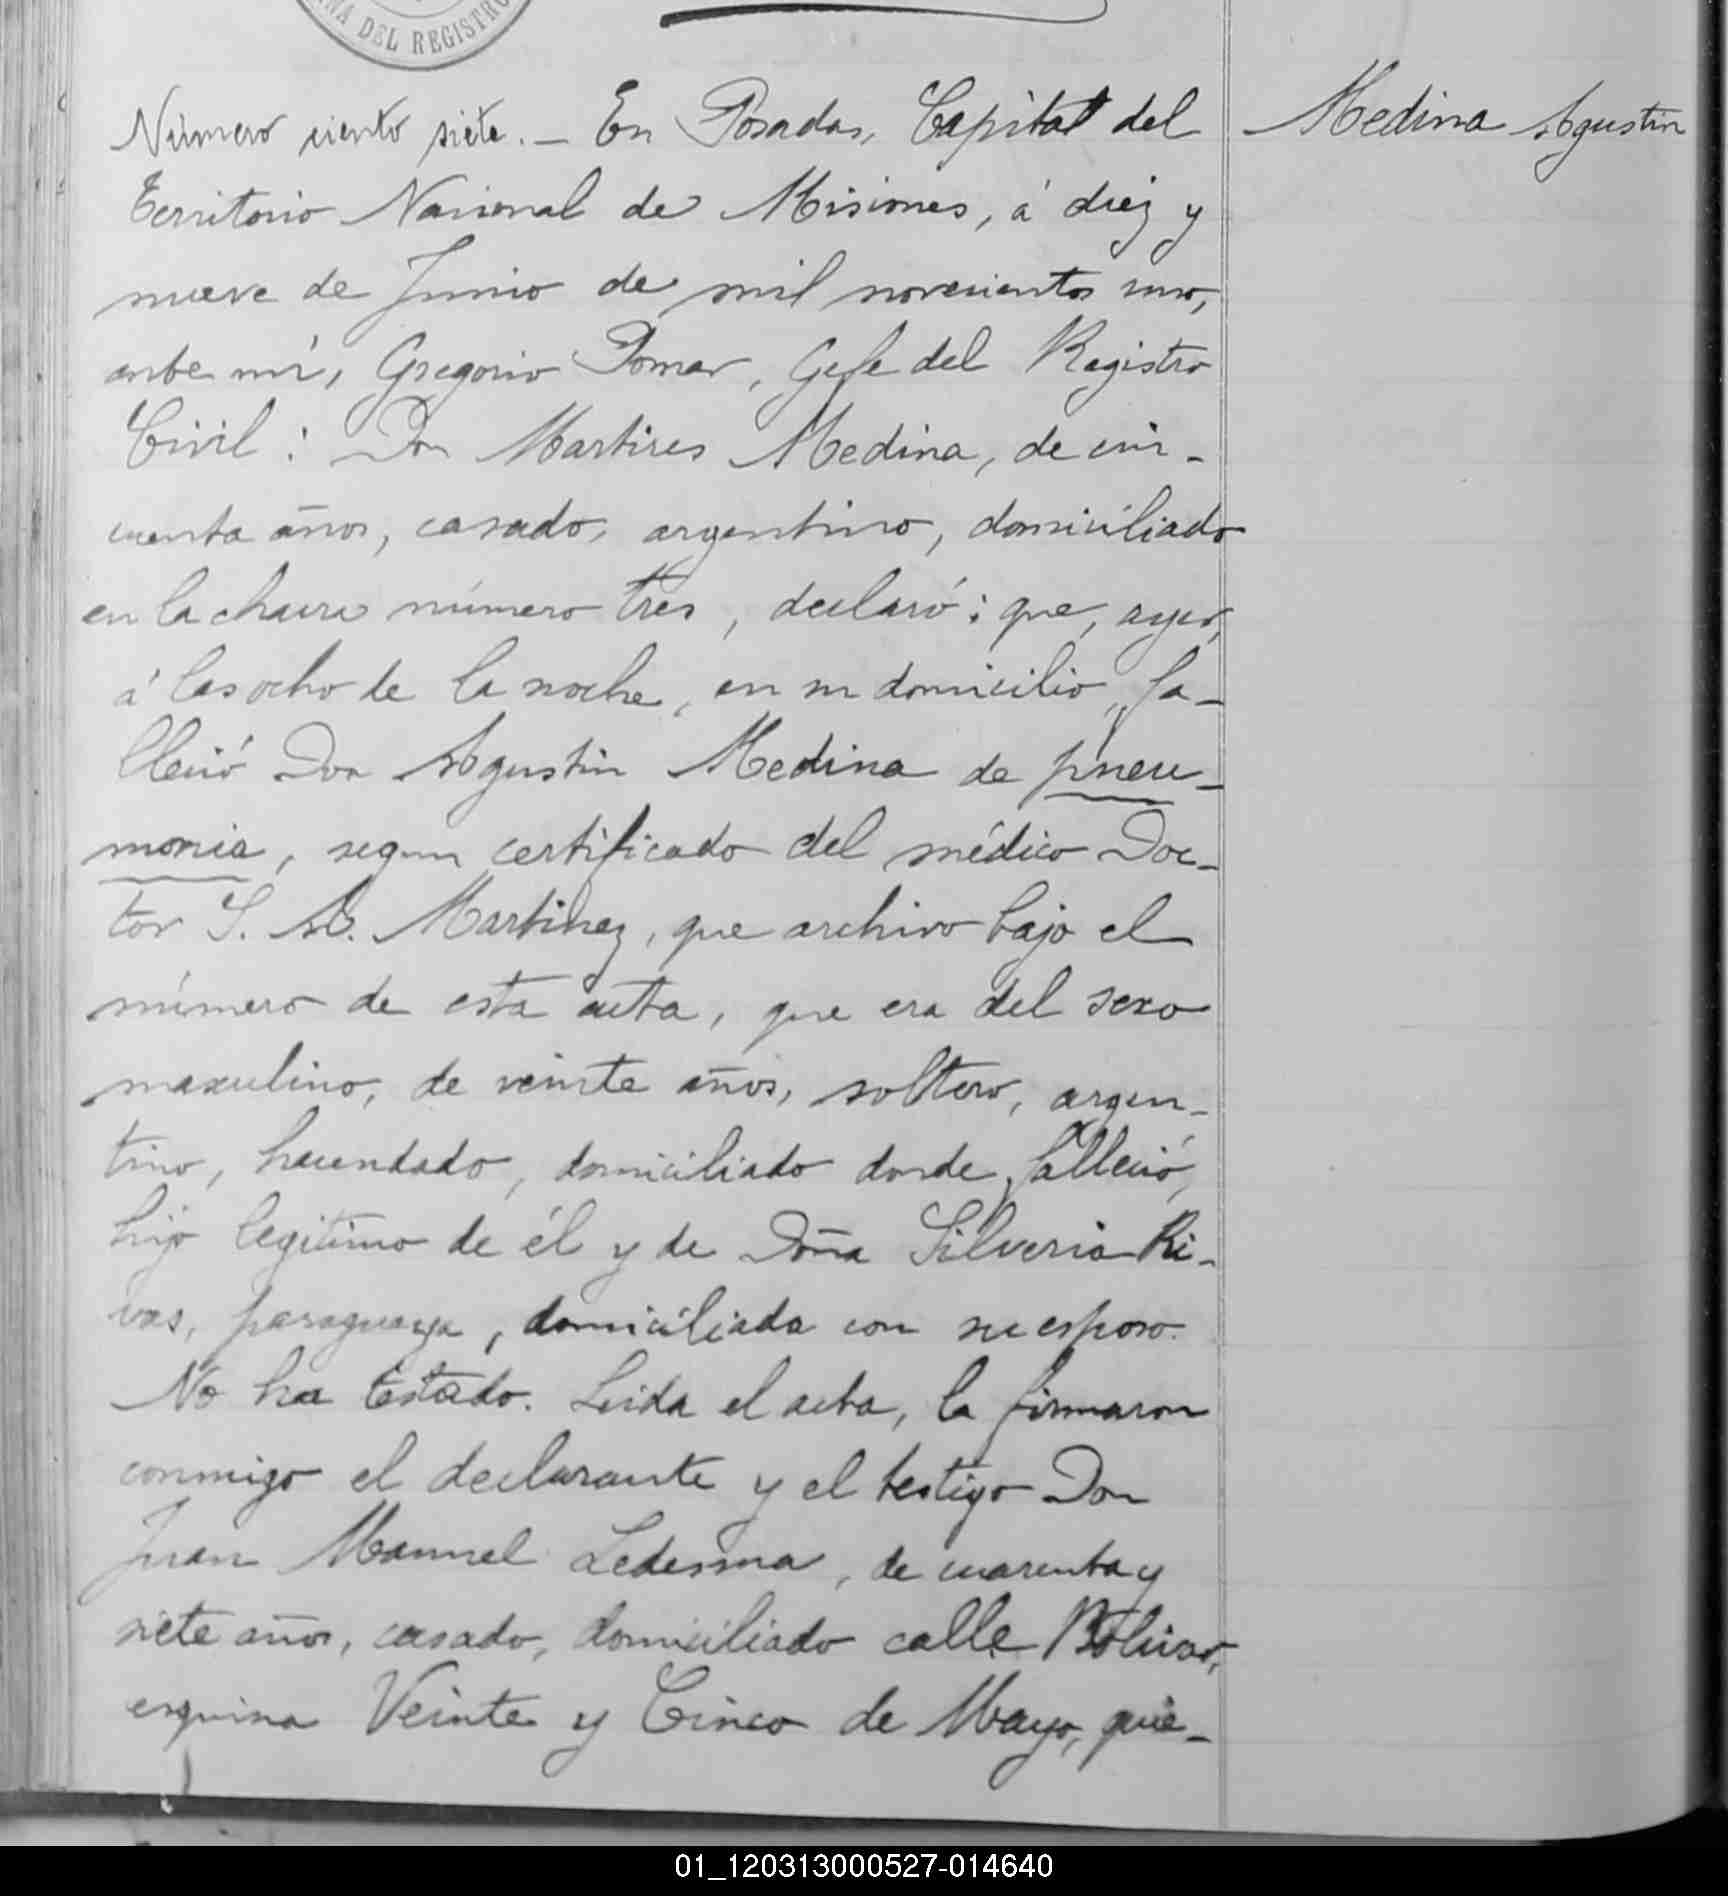 NA DEL REGISTRO
Número ciento siete. - En Posadas, Capital del
Medina Agustin
Territorio Nacional de Misiones, á diez y
nueve de Junio de mil novecientos uno,
ante mí, Gregorio Pomar, Gefe del Registro
Civil: Don Martires Medina, de cin-
cuenta años, casado, argentino, domiciliado
en la chacra número tres, declaró: que, ayer,
á las ocho de la noche, en su domicilio, fa-
lleció Don Agustin Medina de pneu-
monia, segun certificado del médico Doc-
tor S. A. Martinez, que archivo bajo el
número de esta acta, que era del sexo
masculino, de veinte años, soltero, argen-
tino, hacendado, domiciliado donde falleció,
hijo legitimo de él y de Doña Silveria Ri-
vas, paraguaya, domiciliada con su esposo.
No ha testado. Leida el acta, la firmaron
conmigo el declarante y el testigo Don
Juan Manuel Ledesma, de cuarenta y
siete años, casado, domiciliado calle Bolivar,
esquina Veinte y Cinco de Mayo, quie-
01_120313000527-014640